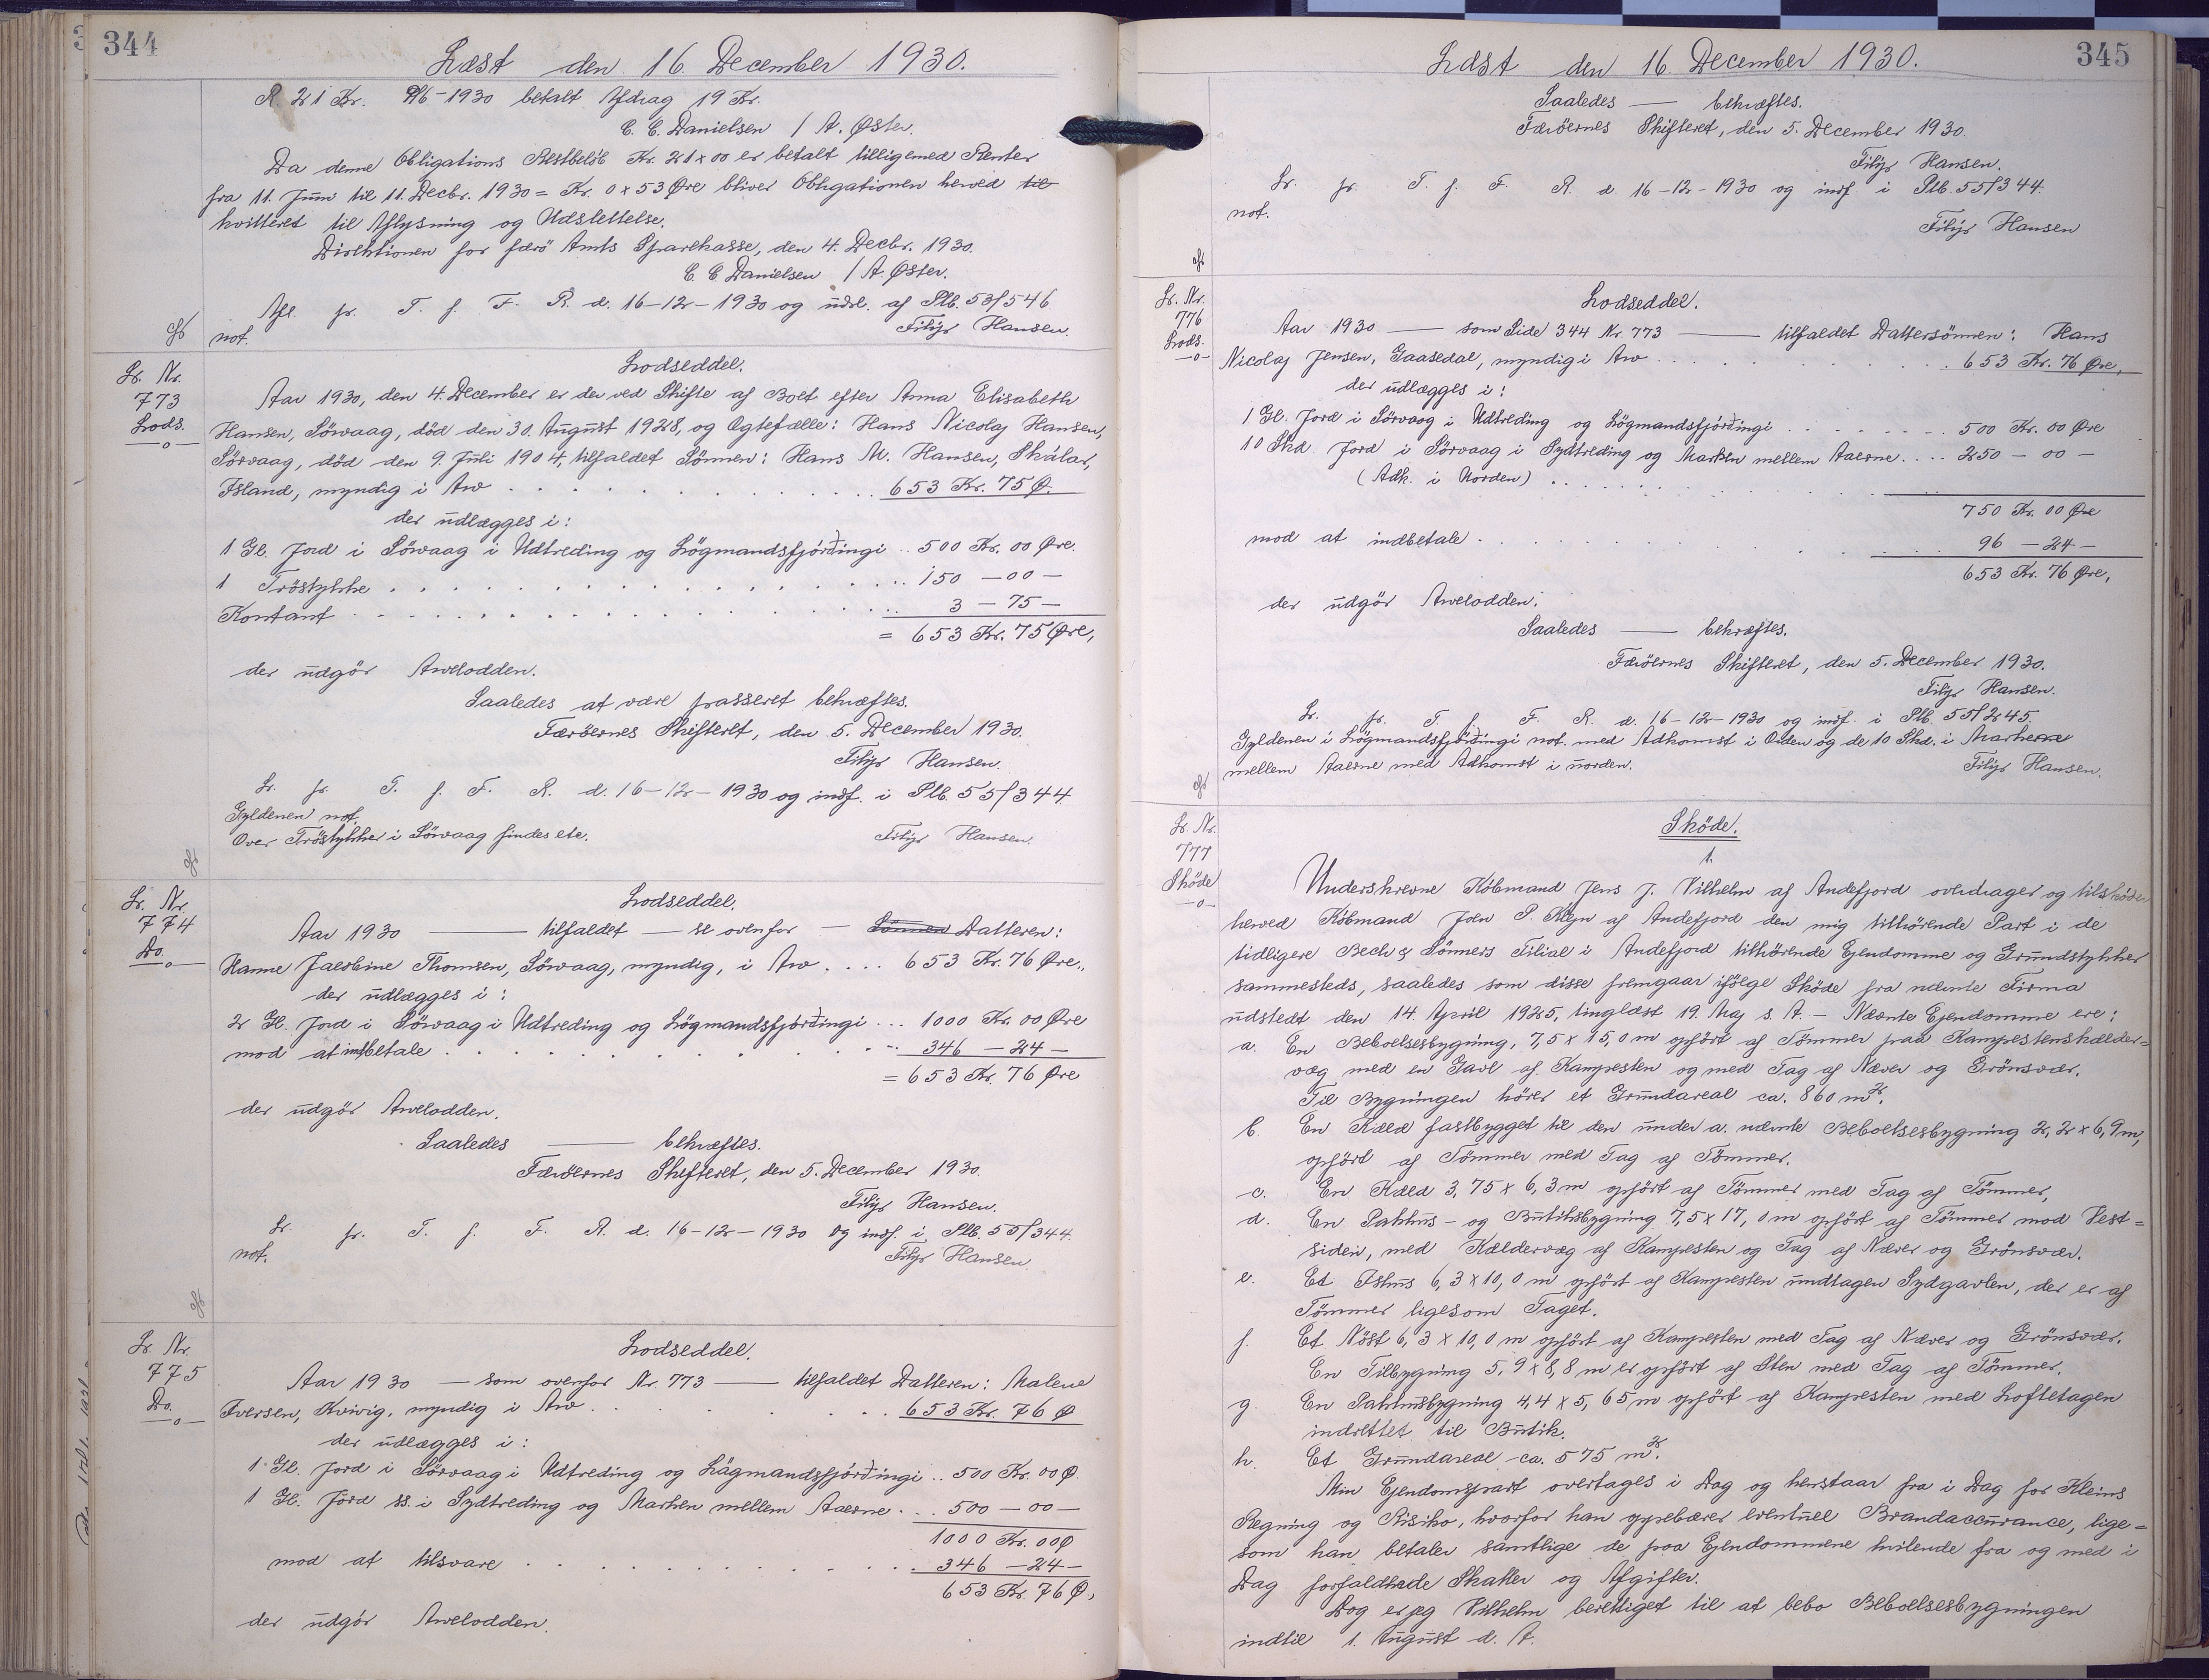 344
Læst den 16. December 1930.
R. 21 Kr. 11/6-1930 betalt Afdrag 19 Kr.
C. C. Danielsen / A. Øster.
Da denne Obligations Restbeløb Kr. 21×00 er betalt tilligemed Renter
fra 11. Juni til 11. Decbr. 1930 = Kr. 0×53 Øre bliver Obligationen herved til
kvitteret til Aflysning og Udslettelse.
Direktionen for Færö Amts Sparekasse, den 4. Decbr. 1930.
C. C. Danielsen / A. Øster.
Afl. fr. T. f. F. R. d. 16-12-1930 og udsl. af Plb. 53/546
not. Filip Hansen.
Lr. Nr.
773
Lods.
Lodseddel.
Aar 1930, den 4. December er der ved Skifte af Boet efter Anna Elisabeth
Hansen, Sörvaag, död den 30. August 1928, og Ægtefælle: Hans Nicolaj Hansen,
Sörvaag, död den 9. Juli 1904, tilfaldet Sönnen: Hans M. Hansen, Skálar,
Island, myndig i Arv . . . 653 Kr. 75 Ø.
der udlægges i:
1 Gl. Jord i Sörvaag i Udtreding og Lögmandsfjórðingi .. 500 Kr. 00 Øre.
1 Tröstykke . . . 150 - 00 -
Kontant . . . 3 - 75 -
= 653 Kr. 75 Øre,
der udgör Arvelodden.
Saaledes at være passeret bekræftes.
Færöernes Skifteret, den 5. December 1930.
Filip Hansen.
Lr. fr. T. f. F. R. d. 16-12-1930 og indf. i Plb. 55/344
Gyldenen not.
Over Tröstykker i Sörvaag findes ete. Filip Hansen.
Lr. Nr.
774
Do.
Lodseddel.
Aar 1930 —— tilfaldet — se ovenfor — Sönnen Datteren:
Hanne Jacobine Thomsen, Sörvaag, myndig, i Arv . . . . 653 Kr. 76 Øre.,
der udlægges i:
2 Gl. Jord i Sörvaag i Udtreding og Lögmandsfjórðingi . . . 1000 Kr. 00 Øre
mod at indbetale . . . 346 - 24 -
= 653 Kr. 76 Øre
der udgör Arvelodden.
Saaledes —— bekræftes.
Færöernes Skifteret, den 5. December 1930.
Filip Hansen.
Lr. fr. T. f. F. R. d. 16-12-1930 og indf. i Plb. 55/344.
not. Filip Hansen.
Lr. Nr.
775
Do.
Lodseddel.
Aar 1930 — som ovenfor Nr. 773 —— tilfaldet Datteren: Malene
Iversen, Kvivig, myndig i Arv . . . 653 Kr. 76 Ø
der udlægges i:
1 Gl. Jord i Sörvaag i Udtreding og Lögmandsfjórðingi .. 500 Kr. 00 Ø.
1 Gl. Jord ss. i Sydtreding og Marken mellem Aaerne . . . 500 - 00 -
1000 Kr. 00 Ø
mod at tilsvare . . . 346 - 24 -
653 Kr. 76 Ø,
der udgör Arvelodden.
345
Læst den 16. December 1930.
Saaledes —— bekræftes.
Færöernes Skifteret, den 5. December 1930.
Filip Hansen.
Lr. fr. T. f. F. R. d. 16-12-1930 og indf. i Plb. 55/344.
not.
Filip Hansen
Lr. Nr.
776
Lods.
Lodseddel.
Aar 1930 —— som Side 344 Nr. 773 —— tilfaldet Dattersönnen: Hans
Nicolaj Jensen, Gaasedal, myndig i Arv . . . 653 Kr. 76 Øre,
der udlægges i:
1 Gl. Jord i Sörvaag i Udtreding og Lögmandsfjórðingi . . . 500 Kr. 00 Øre
10 Skd. Jord i Sörvaag i Sydtreding og Marken mellem Aaerne . . . . 250 - 00 -
(Adk. i Norden) . . .
750 Kr. 00 Øre
mod at indbetale . . . 96 - 24 -
653 Kr. 76 Øre,
der udgör Arvelodden.
Saaledes —— bekræftes.
Færöernes Skifteret, den 5. December 1930.
Filip Hansen.
Lr. fr. T. f. F. R. d. 16-12-1930 og indf. i Plb. 55/245.
Gyldenen i Lögmandsfjórðingi not. med Adkomst i Orden og de 10 Skd. i Marken
mellem Aaerne med Adkomst i norden. Filip Hansen.
Lr. Nr.
777
Sköde
Sköde.
1.
Underskrevne Köbmand Jens J. Vilhelm af Andefjord overdrager og tilsköder
herved Köbmand Joen P. Klein af Andefjord den mig tilhörende Part i de
tidligere Bech & Sönners Filial i Andefjord tilhörende Ejendomme og Grundstykker
sammesteds, saaledes som disse fremgaar ifölge Sköde fra nævnte Firma
udstedt den 14 April 1925, tinglæst 19. Maj s. A. - Nævnte Ejendomme ere:
a. En Beboelsesbygning, 7,5 × 15,0 m opfört af Tömmer paa Kampestenskælder=
væg med en Gavl af Kampesten og med Tag af Næver og Grönsvær.
Til Bygningen hörer et Grundareal ca. 860 m².
b. En Kæld fastbygget til den under a. nævnte Beboelsesbygning 2,2 × 6,9 m,
opfört af Tömmer med Tag af Tömmer.
c. En Kæld 3,75 × 6,3 m opfört af Tömmer med Tag af Tömmer,
d. En Pakhus- og Butiksbygning 7,5 × 17,0 m opfört af Tömmer mod Vest=
siden, med Kældervæg af Kampesten og Tag af Næver og Grönsvær.
e. Et Ishus 6,3 × 10,0 m opfört af Kampesten undtagen Sydgavlen, der er af
Tömmer ligesom Taget.
f. Et Nöst 6,3 × 10,0 m opfört af Kampesten med Tag af Næver og Grönsvær.
En Tilbygning 5,9 × 8,8 m er opfört af Sten med Tag af Tömmer.
g. En Pakhusbygning 4,4 × 5,65 m opfört af Kampesten med Loftetagen
indrettet til Butik.
h. Et Grundareal ca. 575 m².
Min Ejendomspart overtages i Dag og henstaar fra i Dag for Kleins
Regning og Risiko, hvorfor han oppebærer eventuel Brandassurance, lige=
som han betaler samtlige de paa Ejendommene hvilende fra og med i
Dag forfaldende Skatter og Afgifter.
Dog er jeg Vilhelm berettiget til at bebo Beboelsesbygningen
indtil 1. August d. A.